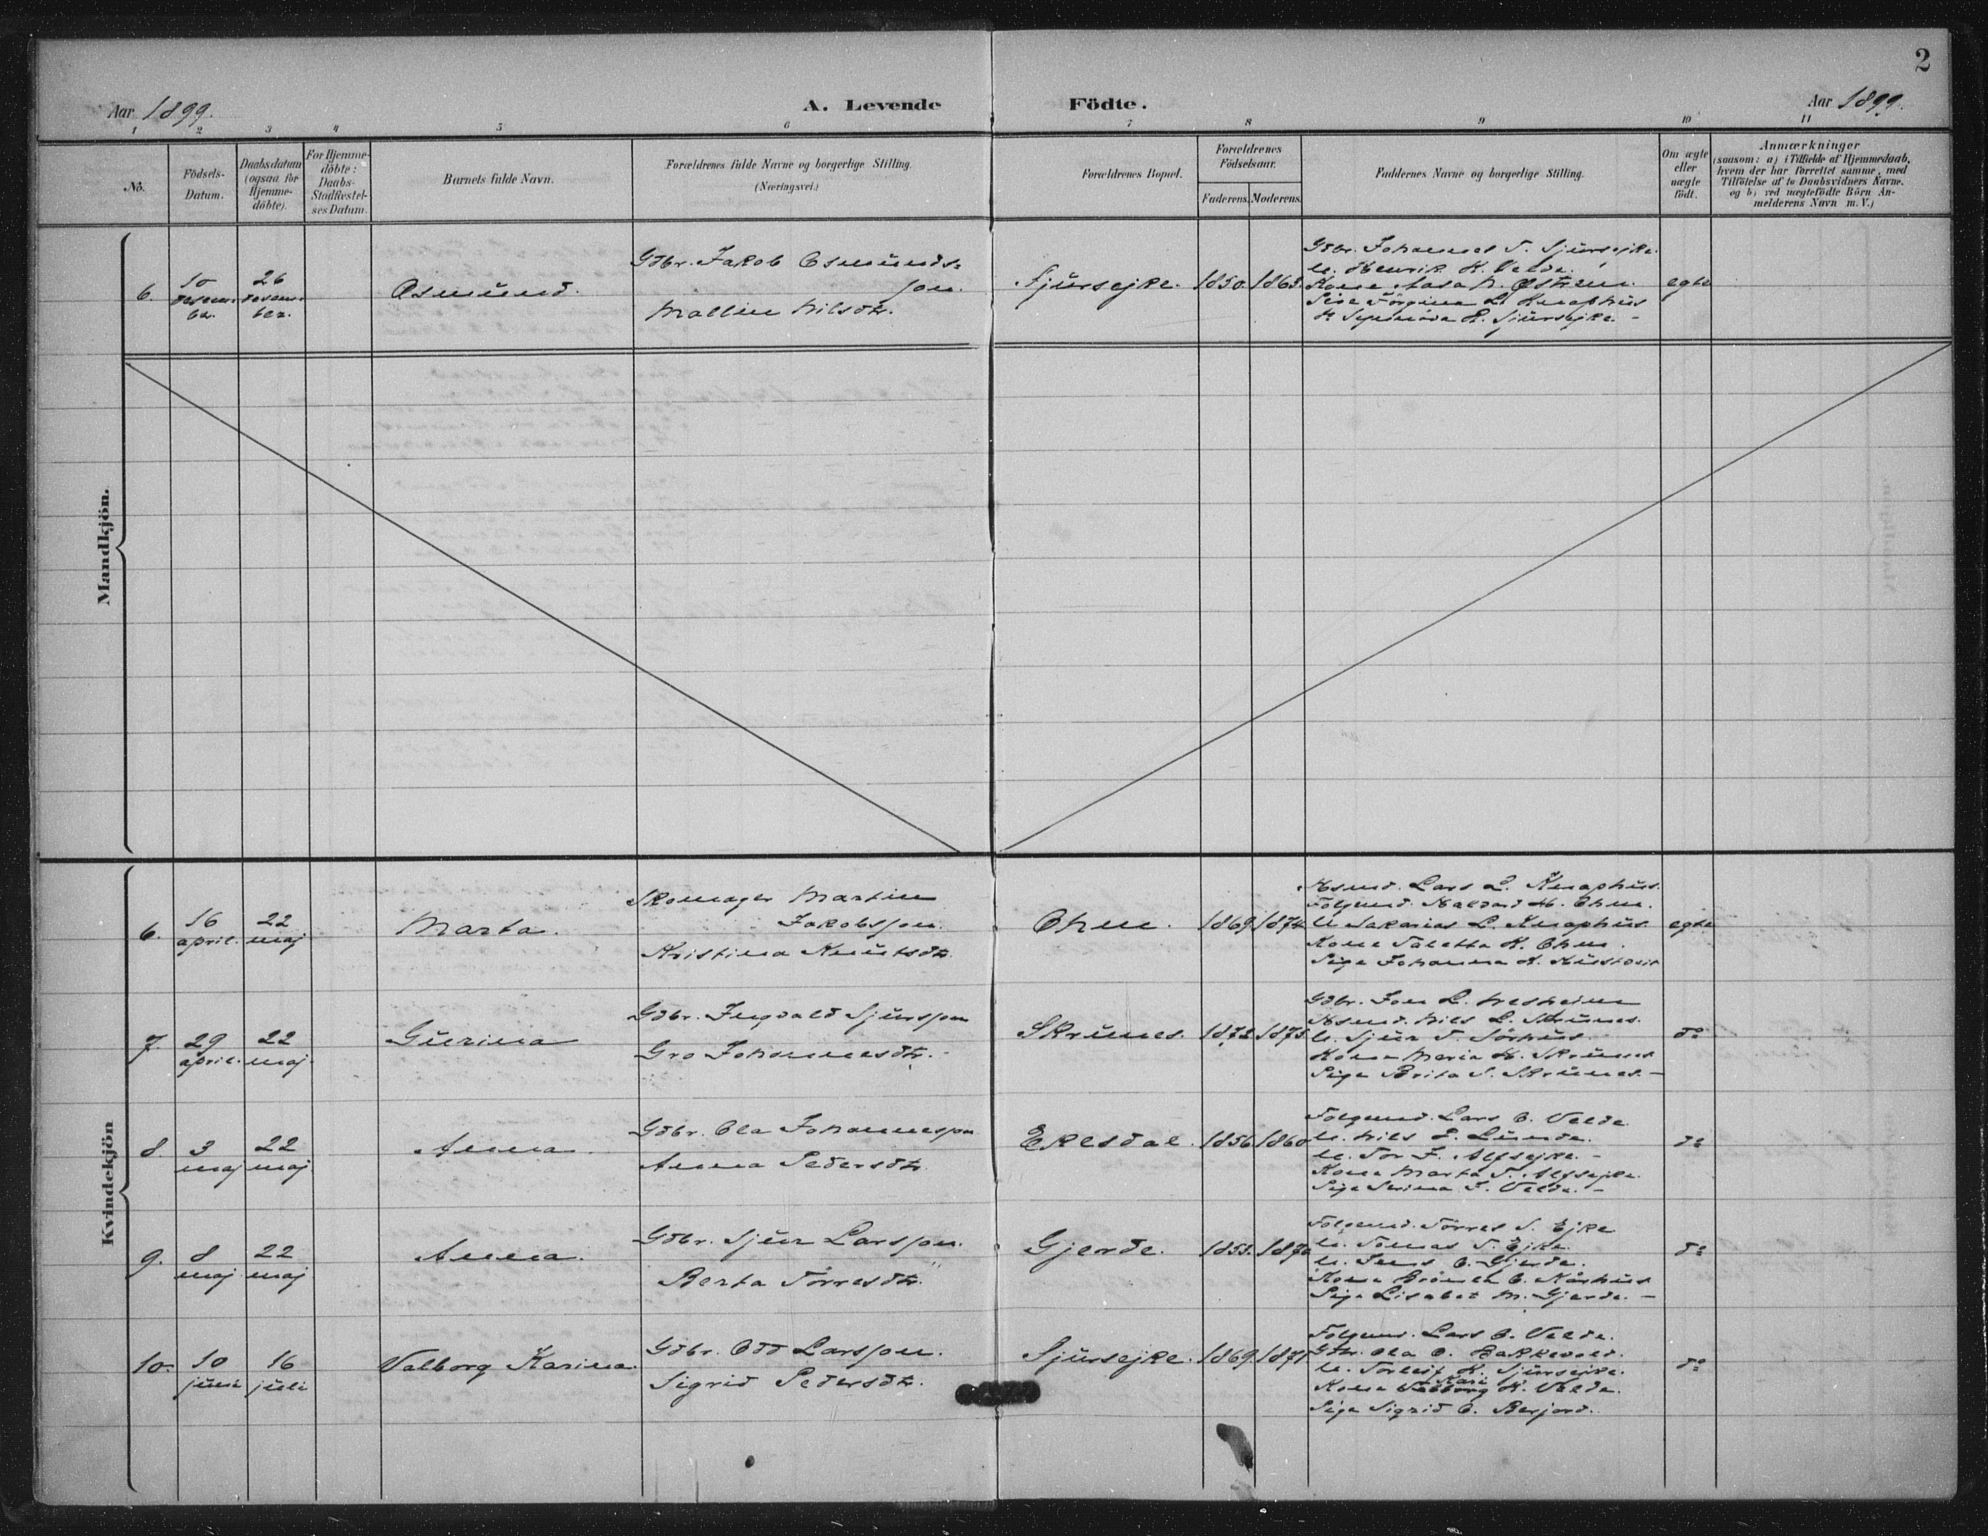 2
Aar 1899.
A. Levende Födte.
Aar 1899.
1 2 3 4 5 6 7 8 9 10 11
No.
Födsels-Datum.
Daabsdatum (ogsaa for Hjemme-döbte).
For Hjemme-döbte: Daabs-Stadfæstel-ses Datum.
Barnets fulde Navn.
Forældrenes fulde Navne og borgerlige Stilling. (Næringsvei.)
Forældrenes Bopæl.
Forældrenes Födselsaar.
Faderens. Moderens.
Faddernes Navne og borgerlige Stilling.
Om ægte eller uægte födt.
Anmærkninger
(saasom: a) i Tilfælde af Hjemmedaab,
hvem der har forrettet samme, med
Tilföielse af to Daabsvidners Navne.
og b) ved uægtefödte Börn An-
melderens Navn m. V.)
Mandkjön.
6.
10 desem-
26 desem-
ber.
Osmund.
Gdbr. Jakob Osmunds-
son.
Mallin Nilsdtr.
Sjursejke.
1850. 1865.
Gdbr. Johannes T. Sjursejke.
U. Henrik H. Velde.
Kone Aasa N. Östrem.
Pige Jörgina L. Knaphus
H. Sjursejke
egte
Kvindekjön
6.
16 april.
22 maj
Marta.
Skomager Martin
Jakobsson.
Kristina Knutsdtr.
Ohm.
1869. 1874.
Lars L. Knaphus.
Folgemd. Halvard H. Ohm.
U. Sakarias L. Knaphus.
Kone Taletta K. Ohm.
Pige Johanna H.
egte
7.
29 april.
22 maj.
Gurina
Gdbr. Ingvald Sjursson
Gro Johannesdtr.
Skrunes.
1872. 1875.
Gdbr. Jon L. Nesheim
Nils L. Skrunes.
U. Sjur T. Sörhus.
Kone Maria H. Skrunes
Pige Brita S. Skrunes.
do
8
3 maj
22 maj
Anna.
Gdbr. Ola Johannesson
Anna Pedersdtr.
Ekesdal.
1856. 1860.
Folgemd. Lars O. Velde.
U. Nils P. Lunde.
U. Tor J. Alfsejke.
Kone Marta T. Alfsejke.
Pige Serina T. Velde.
do
9.
8 maj
22 maj
Anna.
Gdbr. Sjur Larsson.
Berta Törresdtr.
Gjerde.
1853. 1870
Folgemd. Törres S. Ejke
U. Tomas T. Ejke.
U. Jens O. Gjerde.
Kone O.
Pige Lisabet M. Gjerde.
do
10.
10 juni
16 juli
Valborg Karina.
Gdbr. Odd Larsson.
Sigrid Pedersdtr.
Sjursejke.
1869. 1871.
Folgemd. Lars O. Velde.
Gdbr. Ola O. Bakkevold.
U. Torleif K. Sjursejke.
Kari
Kone Valborg K. Velde.
Pige Sigrid O. Berjord.
do